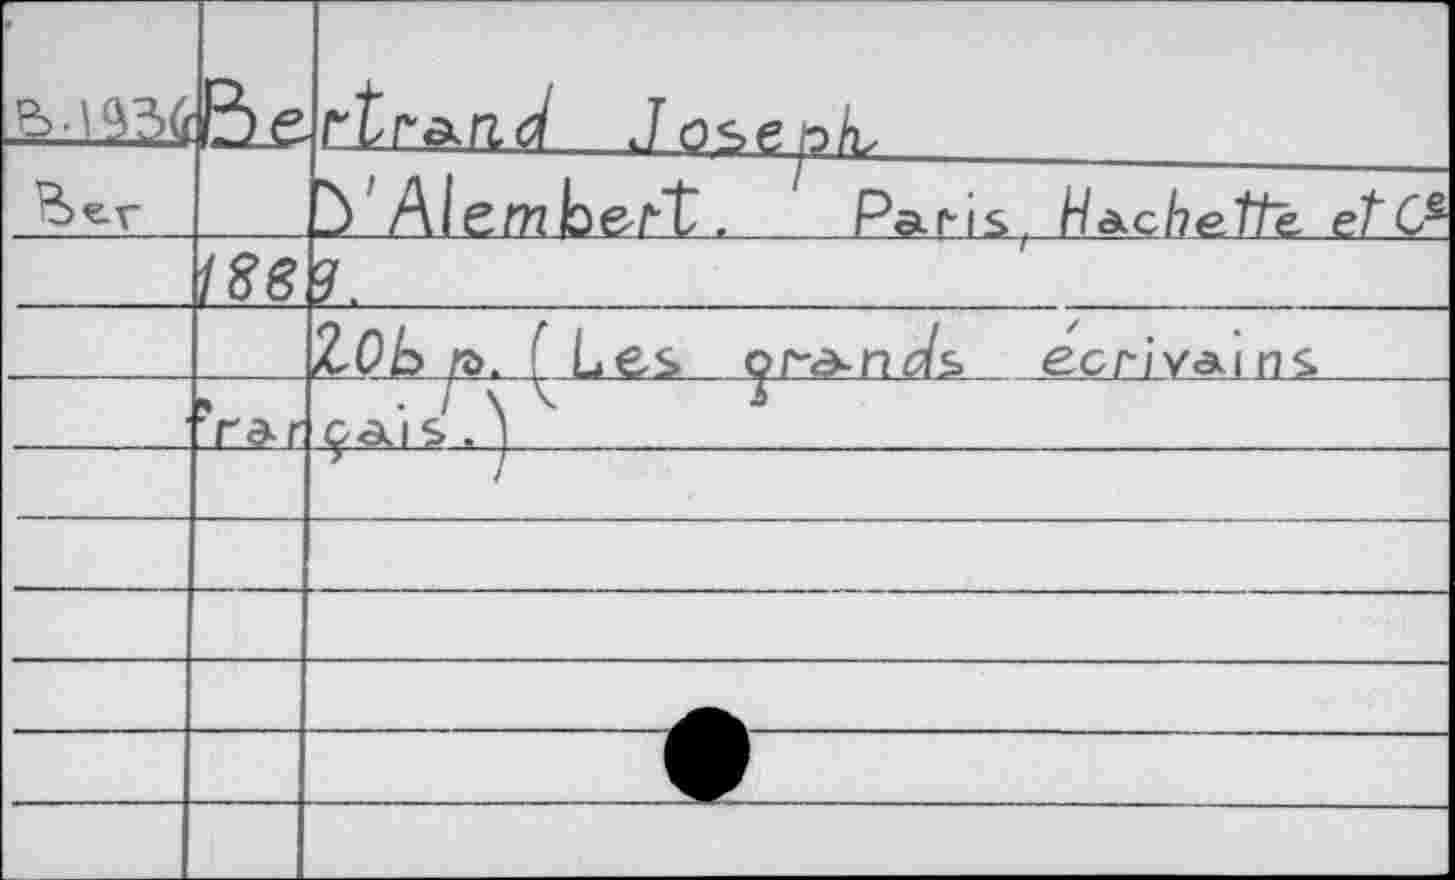 B.1936 Bertrand Joseph
Ber D'Alembert. Paris, Hachette et Cie
1889.
206 p. (Les grands écrivains
français.)